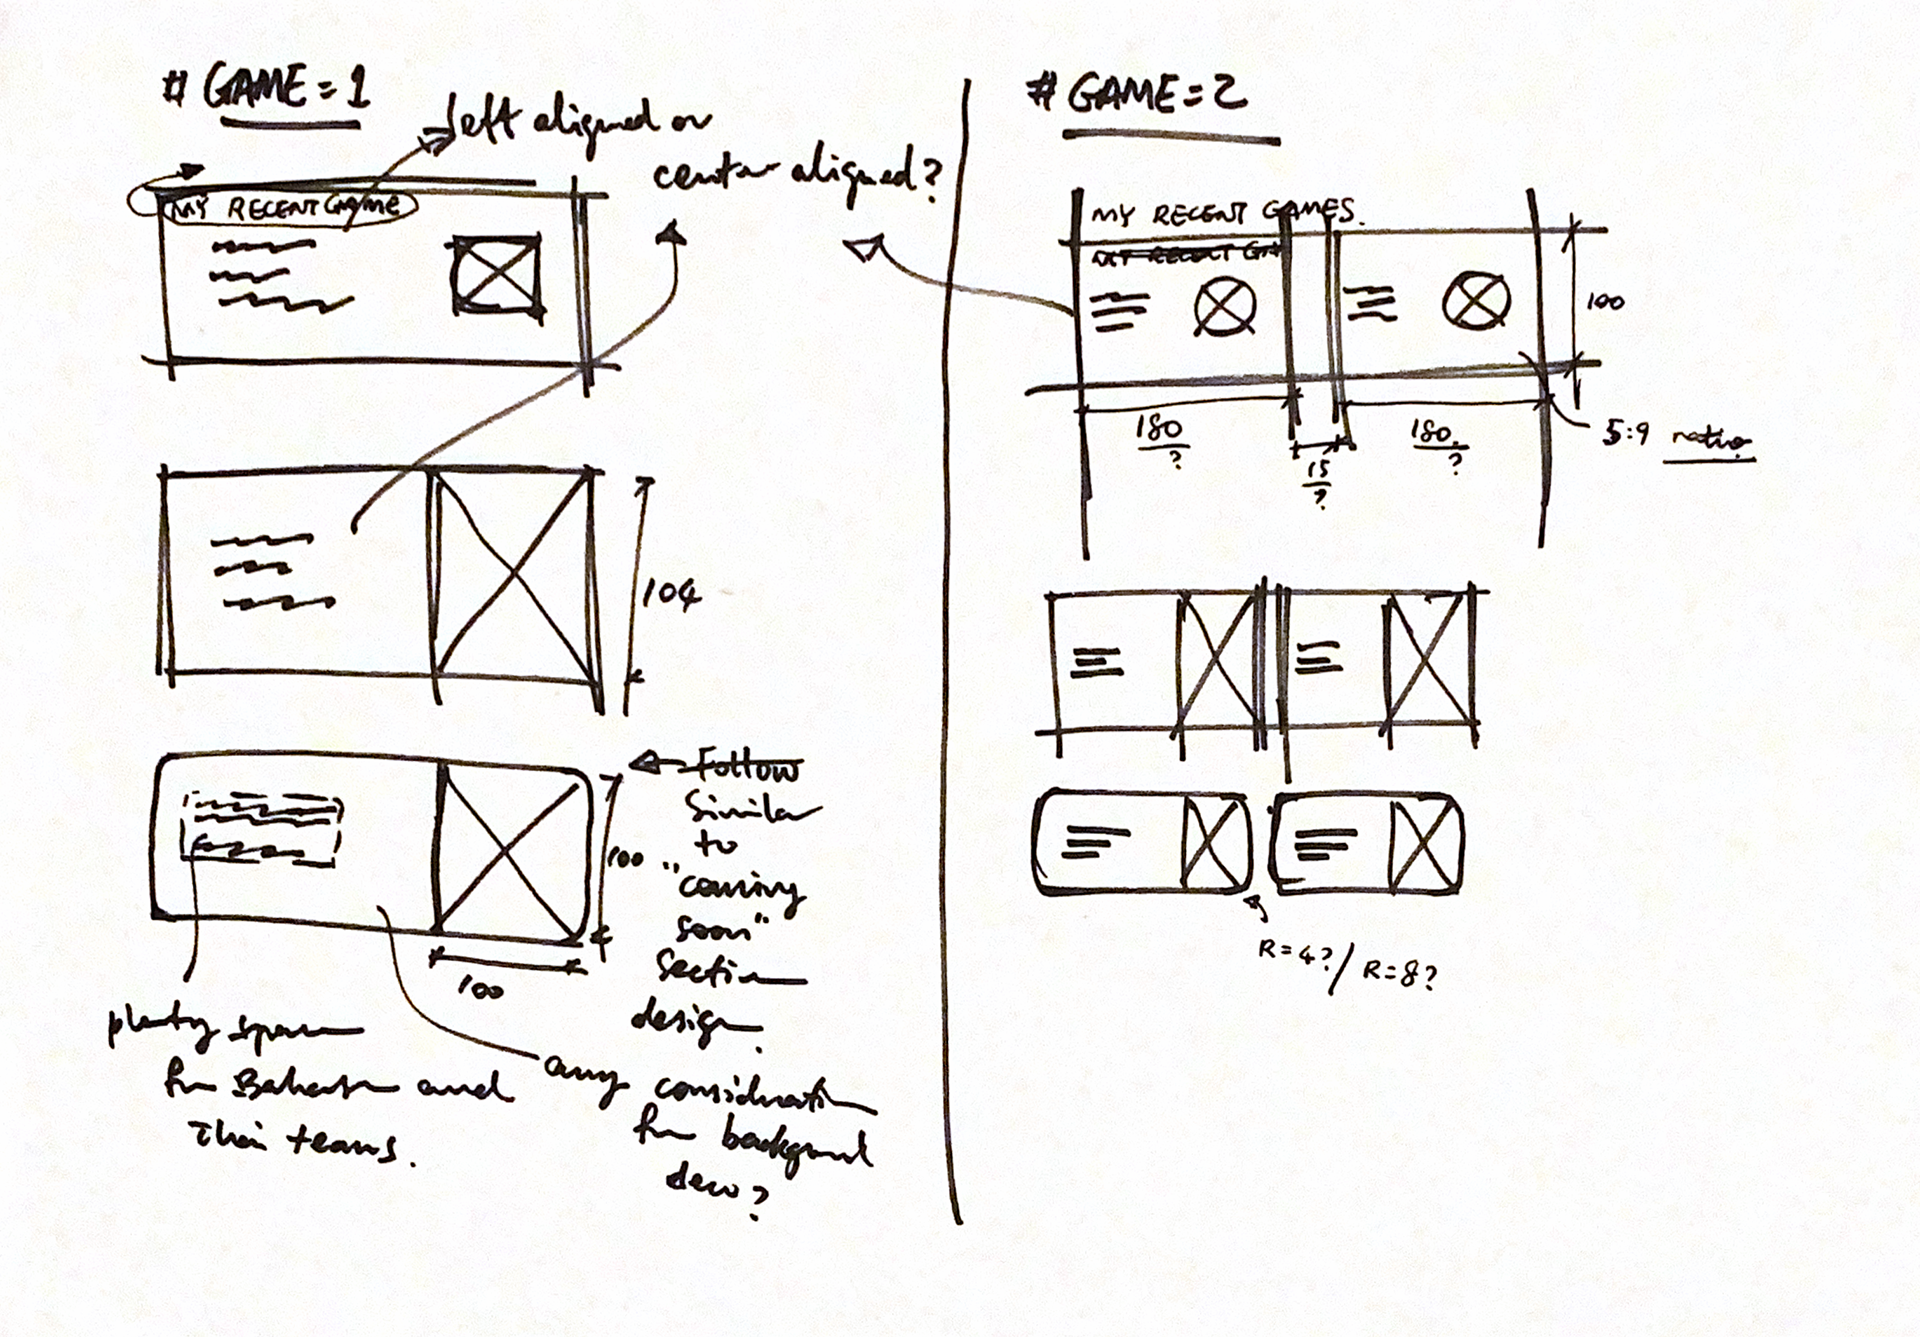 # GAME = 1
left aligned or
center aligned?
MY RECENT GAME
104
Follow
Similar
to
"coming
soon"
section
design.
100
100
plenty space
for and
their teams.
any consideration
for background
deco?
# GAME = 2
MY RECENT GAMES.
MY RECENT GA
100
180
?
15
?
180.
?
5:9 ratio
R=4? / R=8?